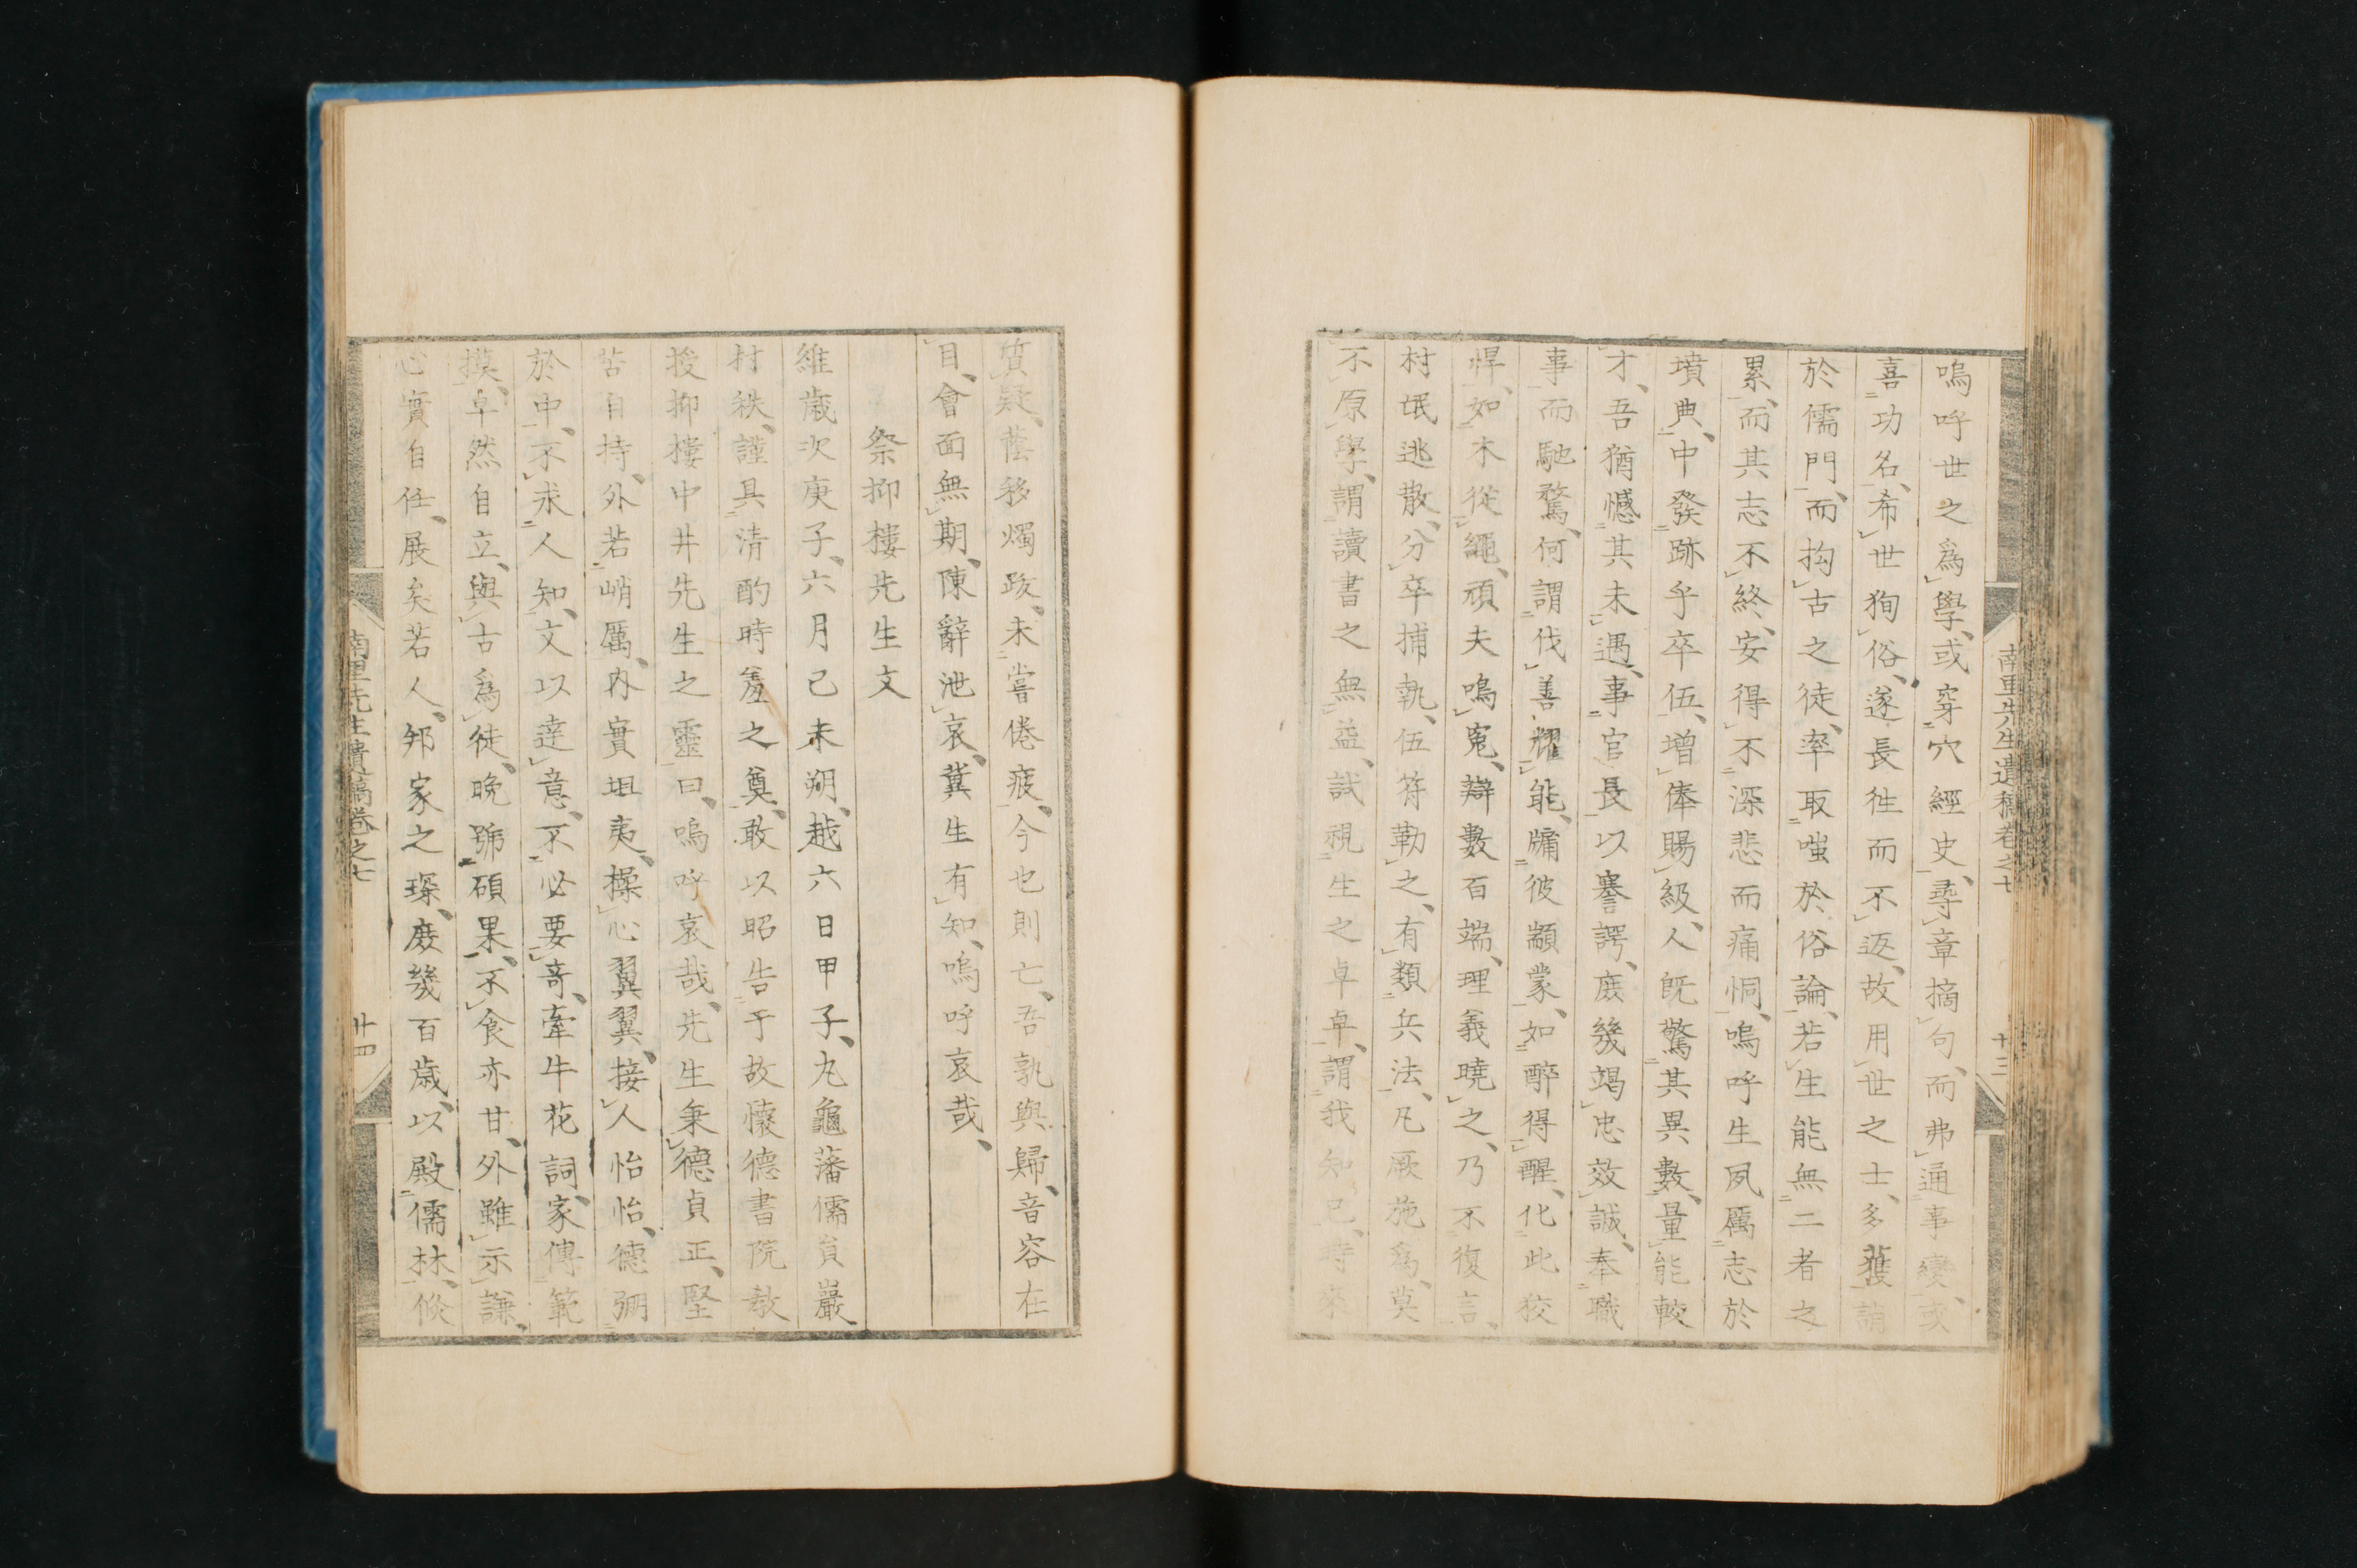 南里先生遺稿卷之七
十三
嗚呼世之爲學、或穿穴經史、尋章摘句、而弗通事變、或
喜功名、希世狥俗、遂長徃而不返、故用世之士、多獲誚
於儒門、而拘古之徒、率取嗤於俗論、若生能無二者之
累、而其志不終、安得不深悲而痛恫、嗚呼生夙厲志於
墳典、中發跡乎卒伍、增俸賜級、人旣驚其異數、量能較
才、吾猶憾其未遇、事官長以謇諤、庶幾竭忠效誠、奉職
事而馳騖、何謂伐善耀能、牖彼顓蒙、如醉得醒、化此狡
悍、如木從繩、頑夫鳴寃、辯數百端、理義曉之、乃不復言、
村氓逃散、分卒捕執、伍符勒之、有類兵法、凡厥施爲、莫
不原學、謂讀書之無益、試視生之卓卓、謂我知己、時來
質疑、蔭移燭跋、未嘗倦疲、今也則亡、吾孰與歸、音容在
目、會面無期、陳辭泄哀、冀生有知、嗚呼哀哉、
祭抑樓先生文
維歲次庚子、六月己未朔、越六日甲子、丸龜藩儒員巖
村秩、謹具清酌時羞之奠、敢以昭告于故懷德書院敎
授抑樓中井先生之靈曰、嗚呼哀哉、先生秉德貞正、堅
苦自持、外若峭厲、內實坦夷、操心翼翼、接人怡怡、德弸
於中、不求人知、文以達意、不必要奇、牽牛花詞、家傳範
摸、卓然自立、與古爲徒、晩號碩果、不食亦甘、外雖示謙、
心實自任、展矣若人、邦家之琛、庶幾百歲、以殿儒林、倏
南里先生遺稿卷之七
十四